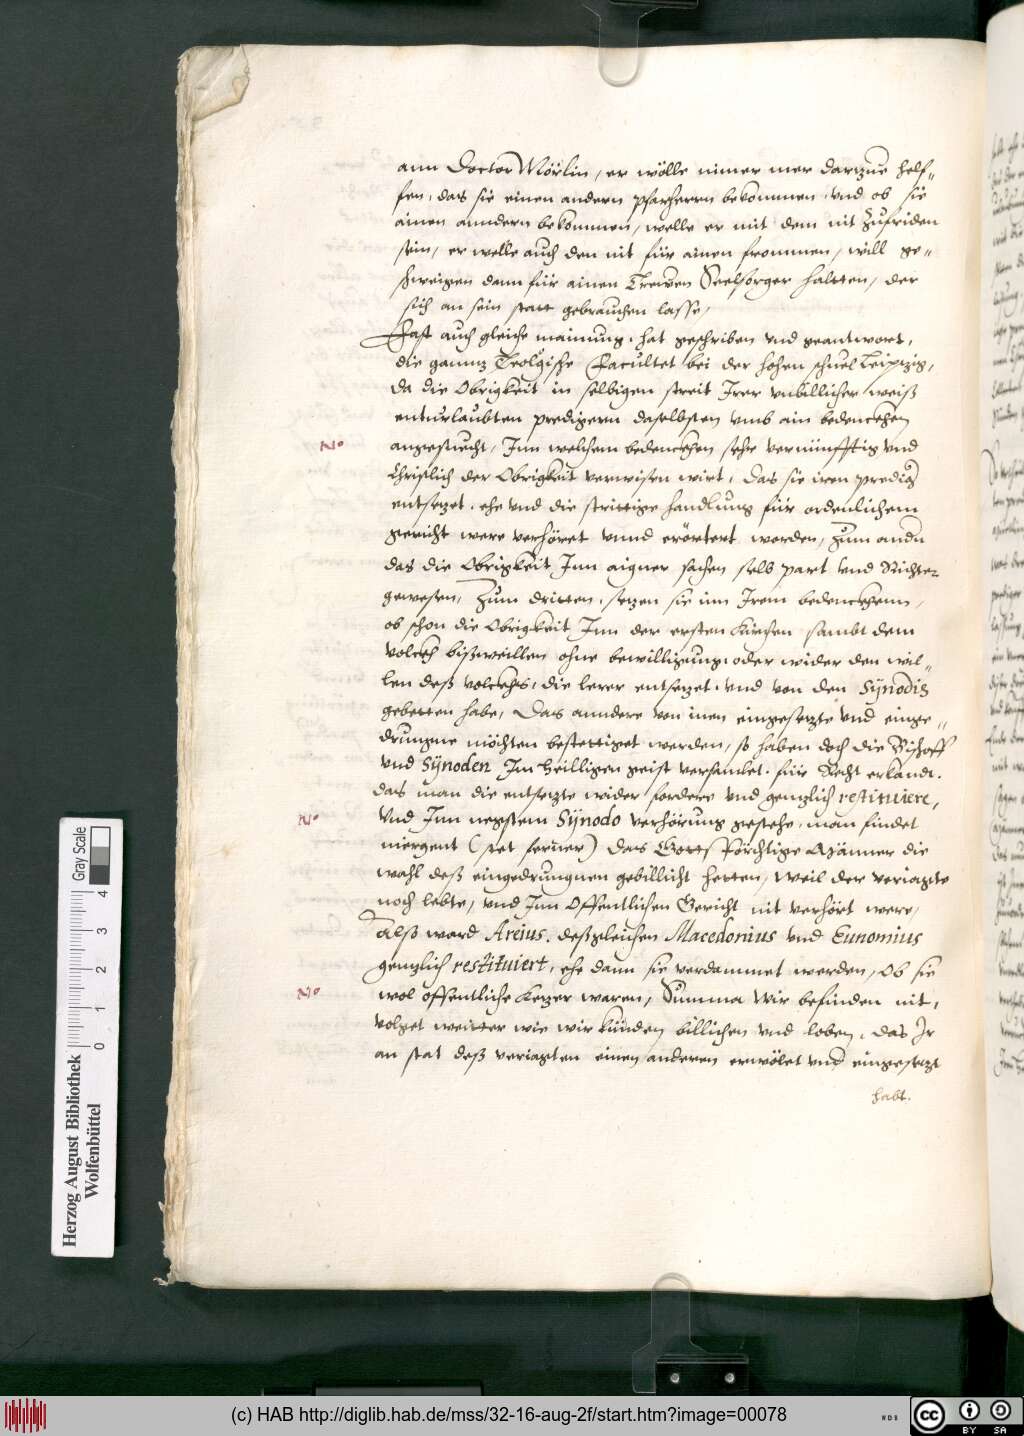 ann Doctor Mörlin, er wölle nimer mer darzue helf-
fen, das sie einen andern pfarherrn bekommen, und ob sie
ainen anndern bekommen, welle er mit dem nit Zufriden
sein, er welle auch den nit für ainen frommen, will ge-
schweigen dann für ainen Trewen Seelsorger haltten, der
sich an sein statt gebrauchen lasse,
Fast auch gleiche mainung, hat geschriben und geantwort,
die gannz Teolgische Facultet bei der hohen schuel Leipzig,
da die Obrigkeit in selbigen streit Irer unbillicher weiß
enturlaubten predigern daselbsten umb ain bedenckhen
No angesuecht, Inn welchem bedenckhen sehr vernünfftig und
Christlich der Obrigkeit verwisen wirt, das sie iren predig
entsezet, ehe und die strittige handlung für ordenlichem
gericht were verhöret unnd erörtert worden, Zum andn
das die Obrigkeit Inn aigner sachen selb part und Richter
gewesen, Zum dritten, sezen sie inn Irem bedenckhenn,
ob schon die Obrigkeit Inn der ersten Kirchen sambt dem
volckh bißweillen ohne bewilligung oder wider den wil-
len deß volckhs, die lerer entsezet, und von den Sÿnodis
gebetten habe, Das anndere von inen eingesezte und einge-
drungne möchten bestettiget werden, so haben doch die Bischoff
und Sÿnoden Im heilligen geist versamlet, für Recht erkandt.
das man die entsezte wider fordere und genzlich restituiere,
No und Inn negstem Sÿnodo verhörung geschehe, man findet
niergent (stet ferner) das Gottsförchtige Männer die
wahl deß eingedrungnen gebillicht hetten, weil der veriagte
noch lebte, und Inn Offentlichen Gericht nit verhört were,
Alßo ward Areius, deßgleichen Macedonius und Eunomius
genzlich restituiert, ehe dann sie verdammet worden, Ob sie
No wol offentliche kezer waren, Summa wir befinden nit,
volget weitter wie wir künden billichen und loben, das Ir
an stat deß veriagten einen anderen erwölet und eingesezt
habt.
Herzog August Bibliothek
Wolfenbüttel
0 1 2 3 4
Gray Scale
(c) HAB http://diglib.hab.de/mss/32-16-aug-2f/start.htm?image=00078
WDB
cc BY SA